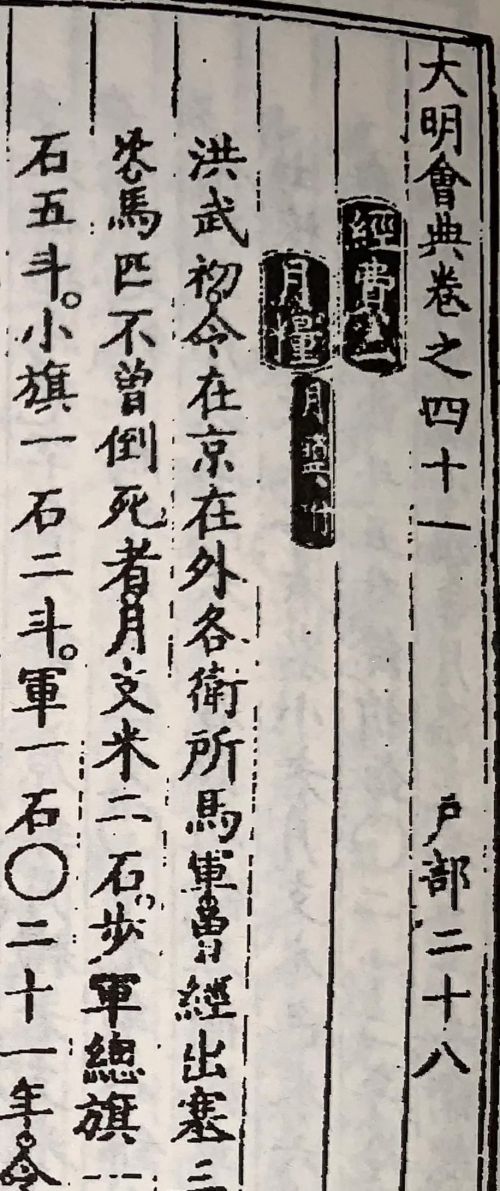 大明會典卷之四十一 戶部二十八
經費
月糧 月鹽
洪武初。令在京在外各衛所馬軍。曾經出塞
馬匹不曾倒死者。月支米二石。步軍總旗一
石五斗。小旗一石二斗。軍一石〇二十一年。令